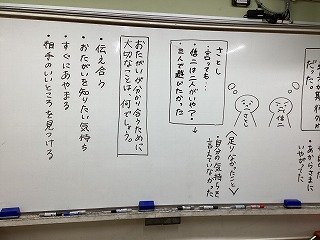 だった。
あからさまに
いやがってた
さとし
信二
さとし
・言っても…
・信二は二人がいや？
・三人で遊びたかった
〈足りなかったこと〉
・自分の気持ちを
言えていなかった
おたがいが分かり合うために
大切なことは、何でしょう。
・伝え合う
・おたがいを知りたい気持ち
・すぐにあやまる
・相手のいいところを見つける